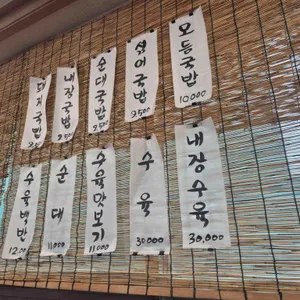 돼지국밥
9500
내장국밥
9500
순대국밥
9500
섞어국밥
9500
모듬국밥
10000
수육백반
12.000
순대
11.000
수육맛보기
11.000
수육
30,000
내장수육
30,000